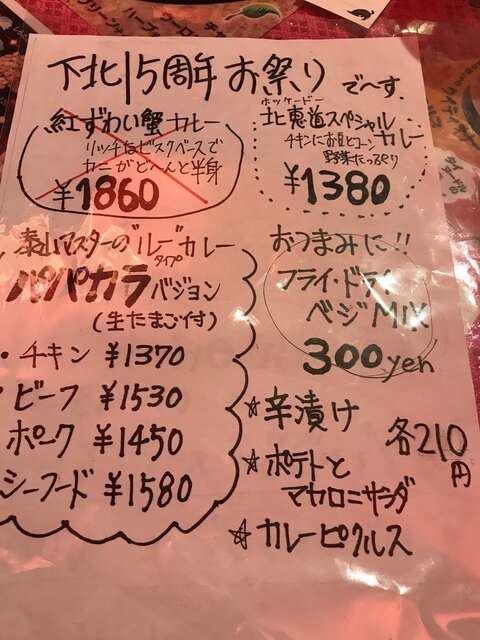 下北15周年お祭りで〜す
紅ずわい蟹カレー
リッチなビスクベースで
カニがどへんと半身
¥1860
ホッケードー
北海道スペシャル
カレー
チキンにお豆とコーン
野菜たっぷり
¥1380
マスターの"ルー"カレー
タイプ
バジョン
(生たまご付)
・チキン ¥1370
ビーフ ¥1530
ポーク ¥1450
シーフード ¥1580
おつまみに!!
フライ・ドライ
ベジMIX
300yen
☆辛漬け
☆ポテトと
マカロニサラダ
☆カレーピクルス
各210
円